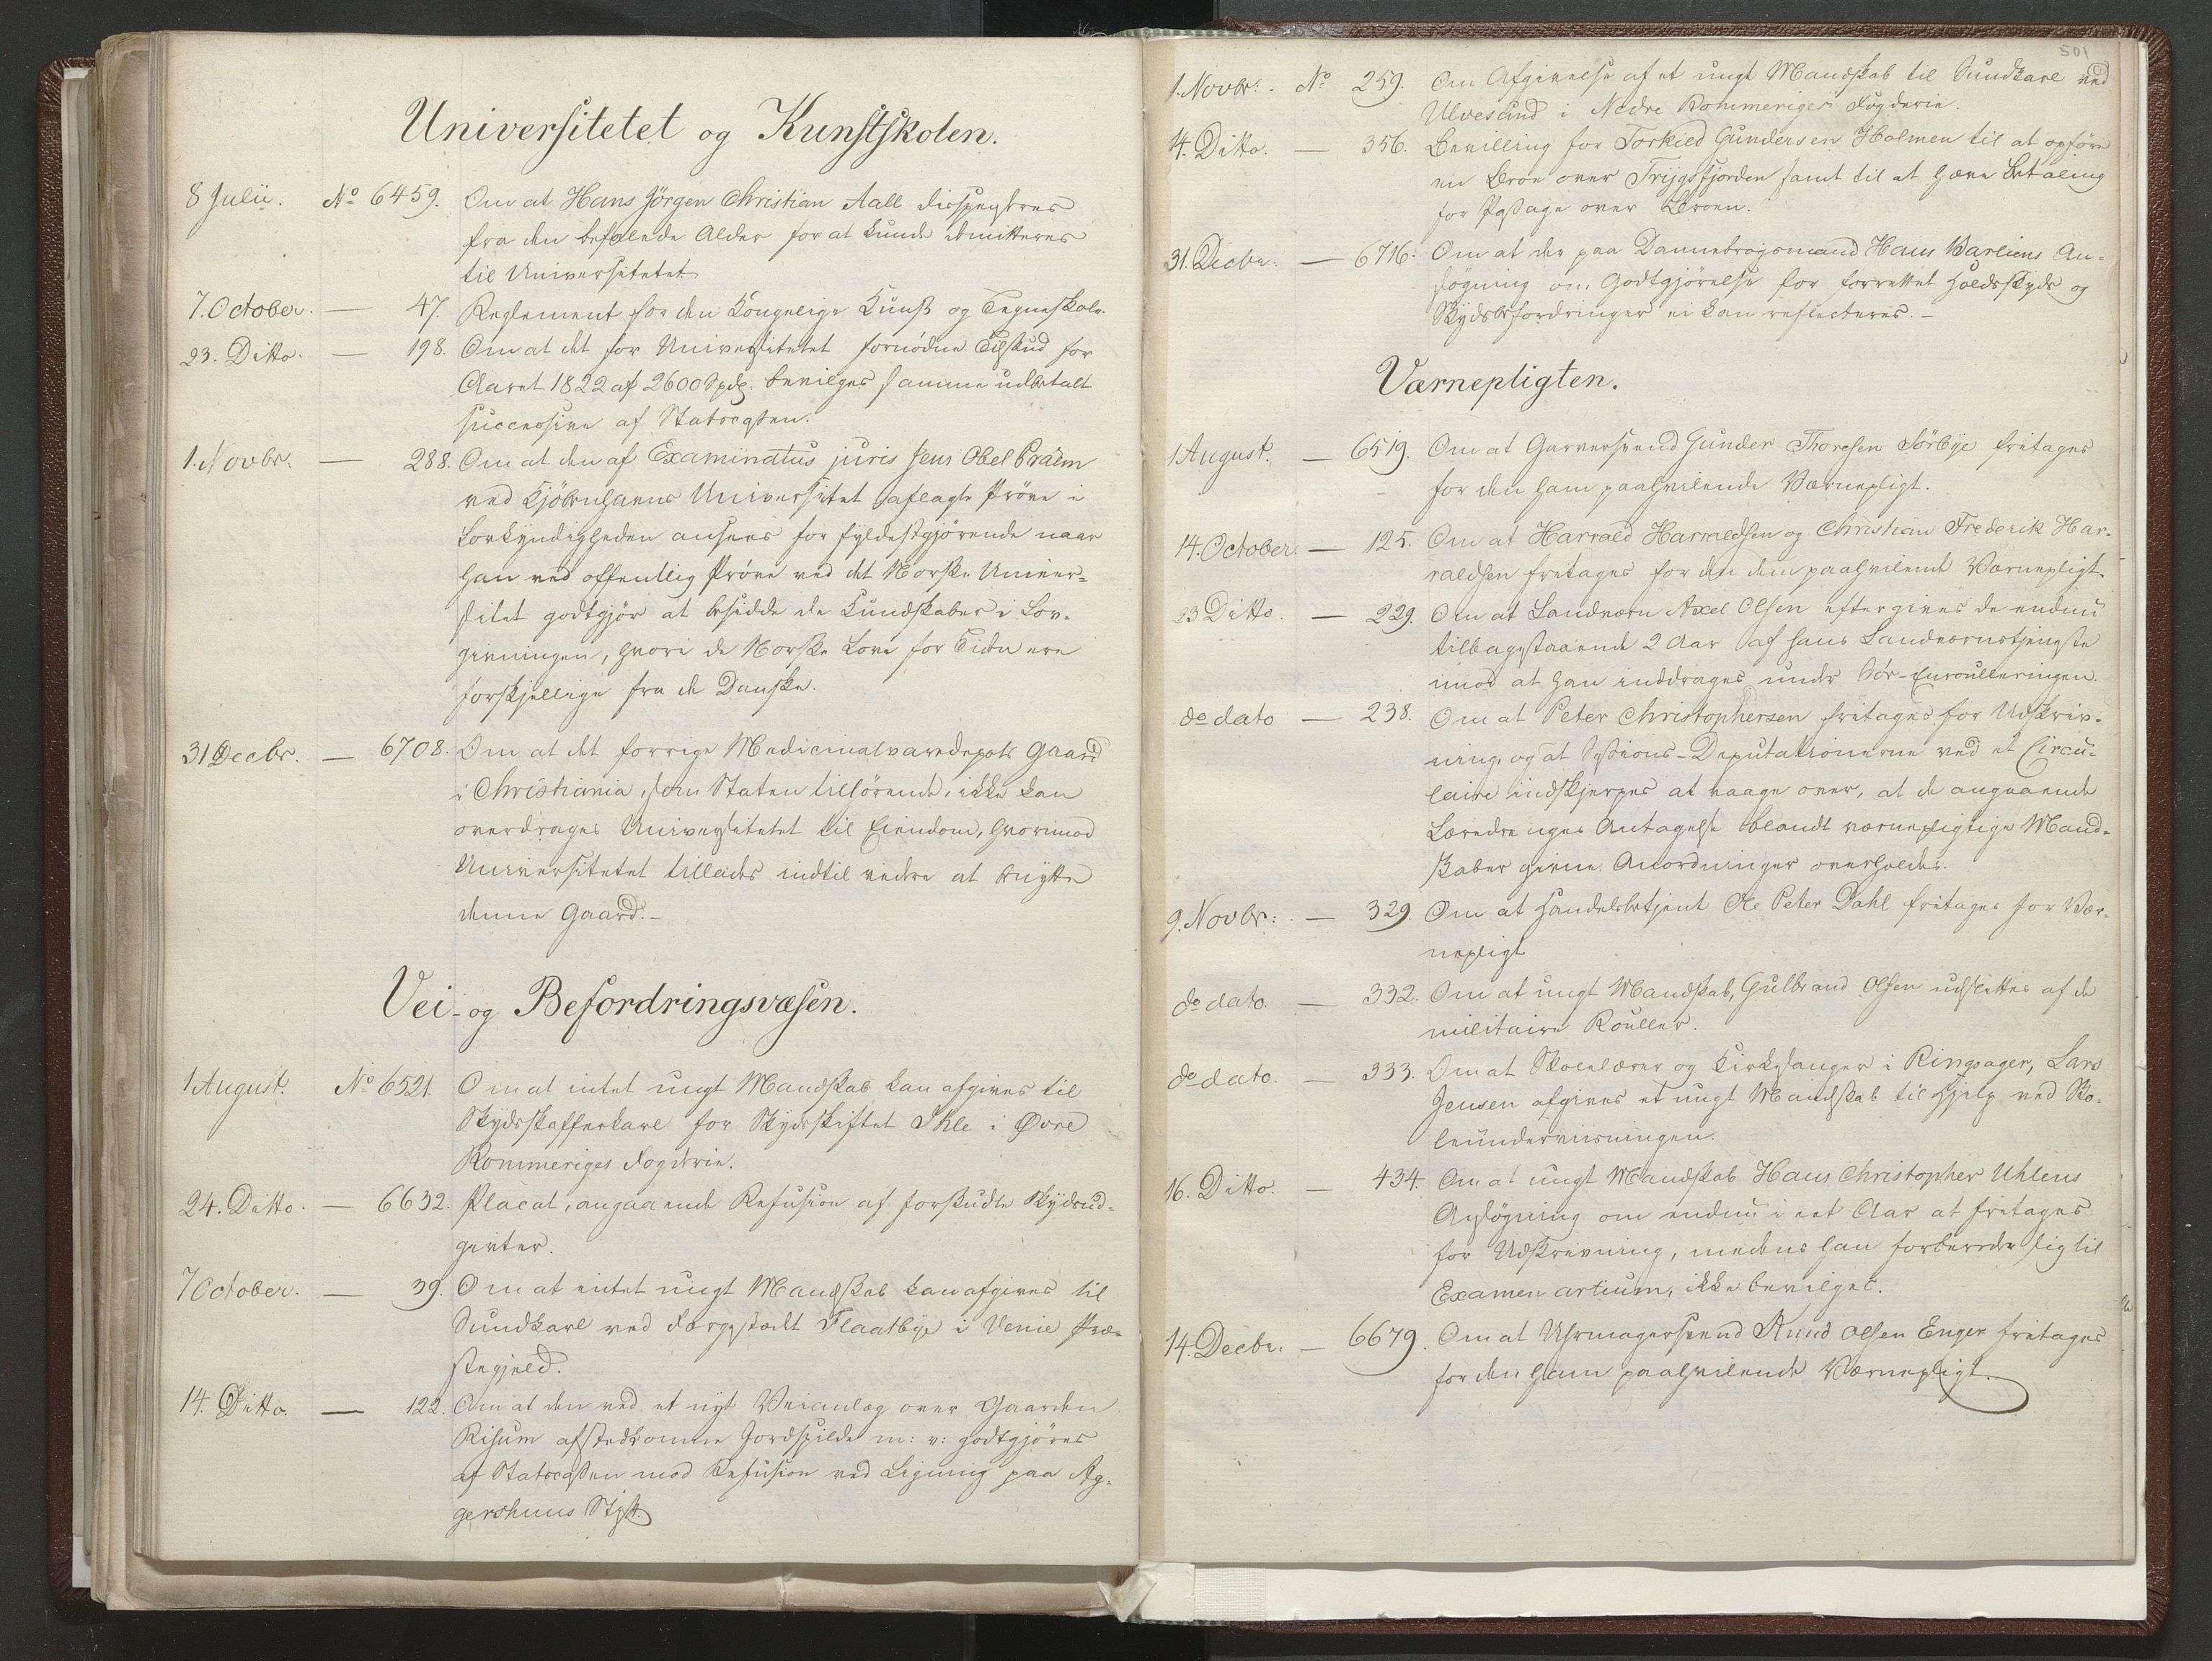 Universitetet og Kunstskolen.
8 Julii. No 6459. Om at Hans Jörgen Christian Aall dispenseres
fra den befalede Alder for at kunde admitteres
til Universitetet
7. October. — 47. Reglement for den Kongelige Kunst og Tegneskole.
23. Ditto. — 198. Om at det for Universitetet fornödne Tilskud for
Aaret 1822 af 2600 Spd. bevilges samme udbetalt
successive af Statscassen.
1. Novbr. — 288. Om at den af Examinatus juris Jens Obel Præm
ved Kjöbenhavns Universitet aflagte Pröve i
Lovkyndigheden ansees for fyldestgjörende naar
han ved offentlig Pröve ved det Norske Univer-
sitet godtgjör at besidde de Kundskaber i Lov-
givningen, hvori de Norske Love for Tiden ere
forskjellige fra de Danske.
31 Decbr. — 6708. Om at det forrige Medicinalvaredepots Gaard
i Christiania, som Staten tilhörende, ikke kan
overdrages Universitetet til Eiendom, hvorimod
Universitetet tillades indtil videre at benytte
denne Gaard.-
Vei- og Befordringsvæsen.
1 August. No 6521. Om at intet ungt Mandskab kan afgives til
Skydsskafferkarl for Skydsskiftet Ihle i Øvre
Rommeriges Fogderie.
24. Ditto. — 6632. Placat, angaaende Refusion af forskudte Skydsud-
givter.
7 October. — 39. Om at intet ungt Mandskab kan afgives til
Sundkarl ved Færgestædet Flaatbye i Venie Præ-
stegjeld.
14. Ditto. — 122. Om at den ved et nyt Veianlæg over Gaarden
Risum afstedkomne Jordspilde m: v: godtgjöres
af Statscassen mod Refusion ved Ligning paa Ag-
gershuus Stift
501
1. Novbr. - No 259. Om Afgivelse af et ungt Mandskab til Sundkarl ved
Ulvesund i Nedre Rommeriges Fogderie.
14. Ditto. — 356. Bevilling for Torkild Gundersen Holmen til at opföre
en Broe over Trygsfjorden samt til at hæve Betaling
for Passage over Broen.
31. Decbr. — 6716. Om at der paa Dannebrogsmand Hans Barliens An-
sögning om Godtgjörelse for forrettet Holdsskyds og
Skydsbefordringer ei kan reflecteres.-
Værnepligten.
1 August. — 6519. Om at Garversvend Gunder Thoresen Sörbye fritages
for den ham paahvilende Værnepligt.
14. October. — 125. Om at Harrald Harraldsen og Christian Frederik Har-
raldsen fritages for den dem paahvilende Værnepligt
23 Ditto. — 229. Om at Landværn Axel Olsen eftergives de endnu
tilbagestaaende 2 Aar af hans Landværnstjeneste
imod at han inddrages under Söe-Enroulleringen.
do dato — 238. Om at Peter Christophersen fritages for Udskriv-
ning, og at Sessions-Deputationerne ved et Circu-
laire indskjerpes at vaage over, at de angaaende
Læredrenges Antagelse blandt værnepligtige Mand-
skaber givne Anordninger overholdes.
9. Novbr. — 329. Om at Handelsbetjent Ole Peter Dahl fritages for Vær-
nepligt
do dato. — 332. Om at ungt Mandskab, Gulbrand Olsen udslettes af de
militaire Rouller.
do dato. — 333. Om at Skolelærer og Kirkesanger i Ringsager, Lars
Jensen afgives et ungt Mandskab til Hjelp ved Sko-
leunderviisningen.
16. Ditto. — 434. Om at ungt Mandskab Hans Christopher Uhlens
Ansögning om endnu i eet Aar at fritages
for Udskrivning, medens han forbereder sig til
Examen artium, ikke bevilges.
14. Decbr. — 6679. Om at Uhrmagersvend Knud Olsen Enger fritages
for den ham paahvilende Værnepligt.